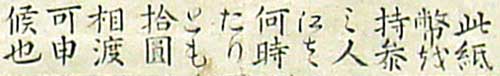 此紙
幣を
持参
之人
江は
何時
たり
とも
拾圓
相渡
可申
候也